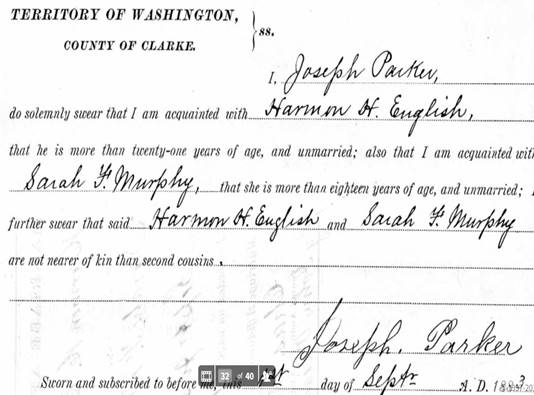 TERRITORY OF WASHINGTON,
COUNTY OF CLARKE.
ss.
I, Joseph Parker,
do solemnly swear that I am acquainted with Harmon H. English,
that he is more than twenty-one years of age, and unmarried; also that I am acquainted with
Sarah F. Murphy, that she is more than eighteen years of age, and unmarried; I
further swear that said Harmon H. English and Sarah F. Murphy
are not nearer of kin than second cousins.
Joseph. Parker
Sworn and subscribed to before me, this 1st day of Septr A. D. 1883
32 of 40